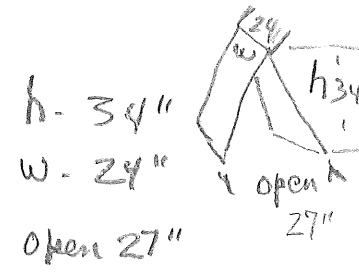 h - 34"
w - 24"
open 27"
24
w
h 34
open
27"